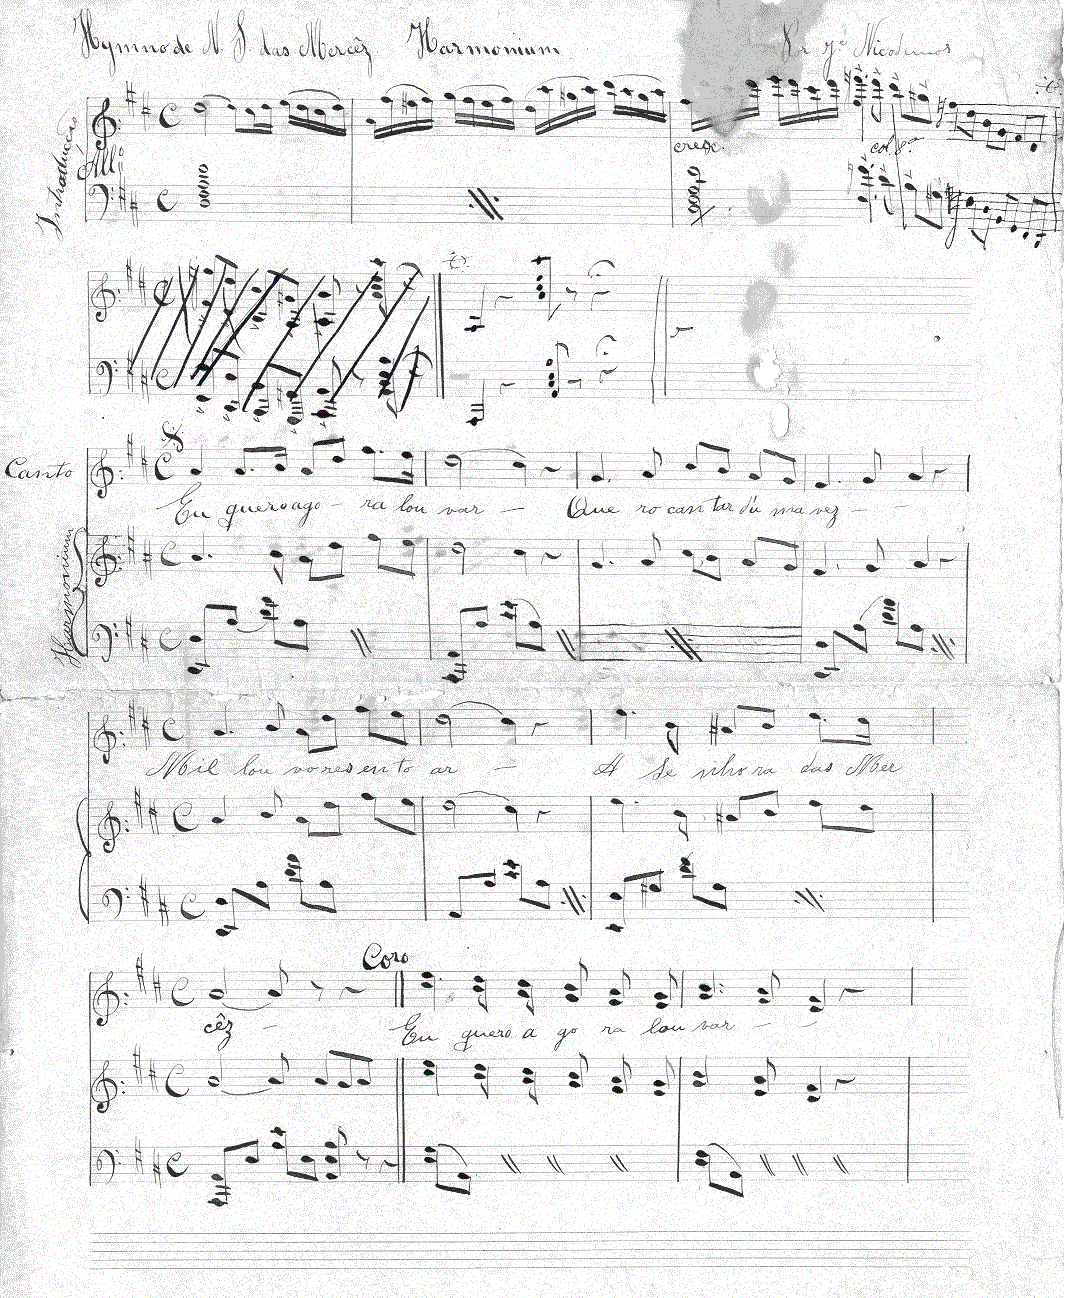 Hymno de N. S. das Mercêz Harmonium Nicodemos
Introducção
Allº
cresc.
Canto
Eu quero ago - ra lou var - Que ro can tar d'u ma vez -
Harmonium
Mil lou vores en to ar - A Se nhora das Mer
Coro
cêz - Eu quero a go ra lou var -